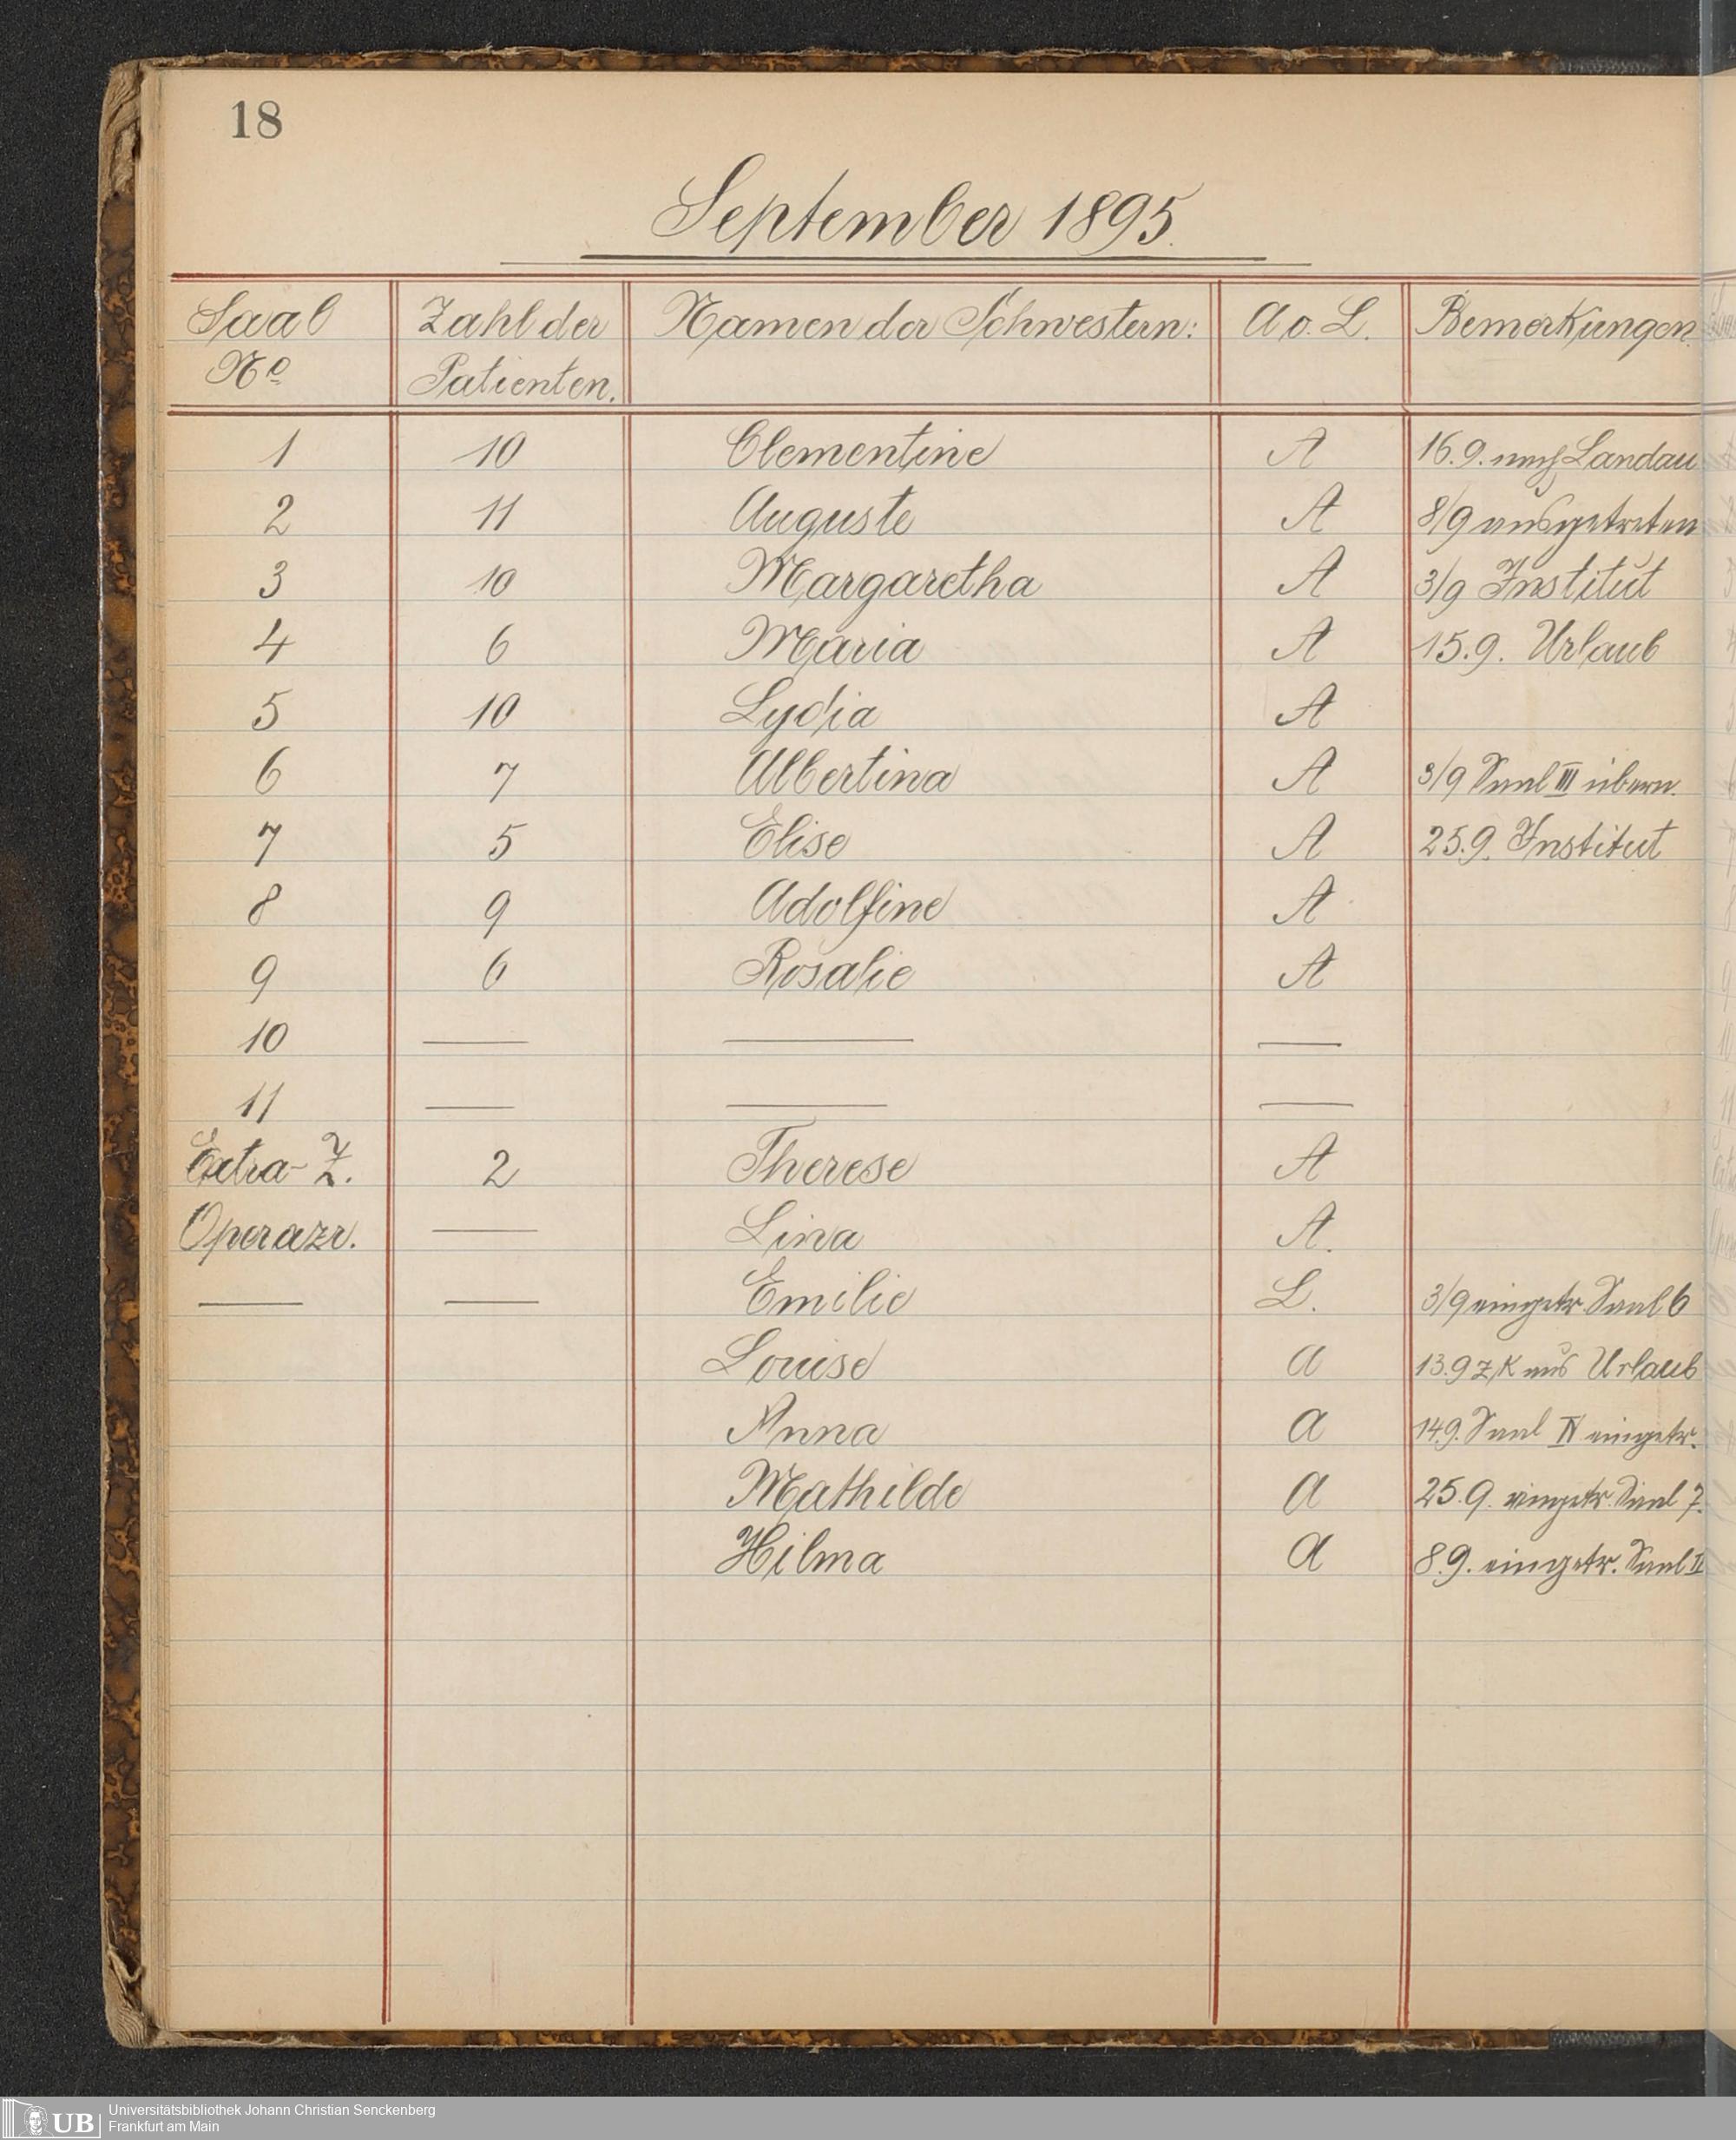 18
September 1895.
Saal Zahl der Namen der Schwestern: A o. L. Bemerkungen.
No Patienten.
1 10 Clementine A 16.9. nach Landau
2 11 Auguste A 8/9 ausgetreten
3 10 Margaretha A 3/9 Institut
4 6 Maria A 15.9. Urlaub
5 10 Lydia A
6 7 Albertina A 3/9 Saal III übern.
7 5 Elise A 25.9. Institut
8 9 Adolfine A
9 6 Rosalie A
10 — — —
11 — — —
Extra-Z. 2 Therese A
Operazr. — Lina A.
— — Emilie L. 3/9 eingetr. Saal 6
Louise A 13.9 z.K aus Urlaub
Anna A 14.9. Saal IV eingetr.
Mathilde A 25.9. eingetr. Saal 7.
Hilma A 8.9. eingetr. Saal II
UB Universitätsbibliothek Johann Christian Senckenberg
Frankfurt am Main